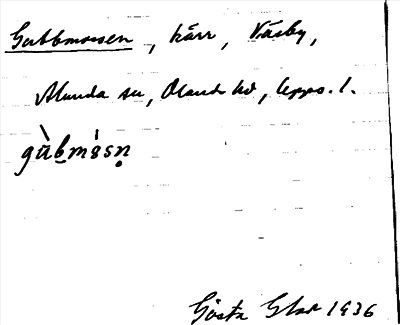 Gubbmossen, kärr, Väsby,
Alunda sn, Olands hd, Upps. l.
gùbmósn̥
Gösta Glas 1936